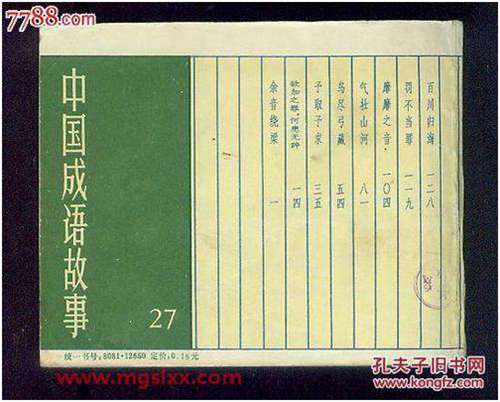 7788.com
中国成语故事
27
余音绕梁 一
欲加之罪，何患无辞 一四
予取予求 三五
鸟尽弓藏 五四
气壮山河 八一
靡靡之音 一〇四
罚不当罪 一一九
百川归海 一二八
统一书号：8081·12650 定价：0.18元
www.mgslxx.com
孔夫子旧书网
www.kongfz.com